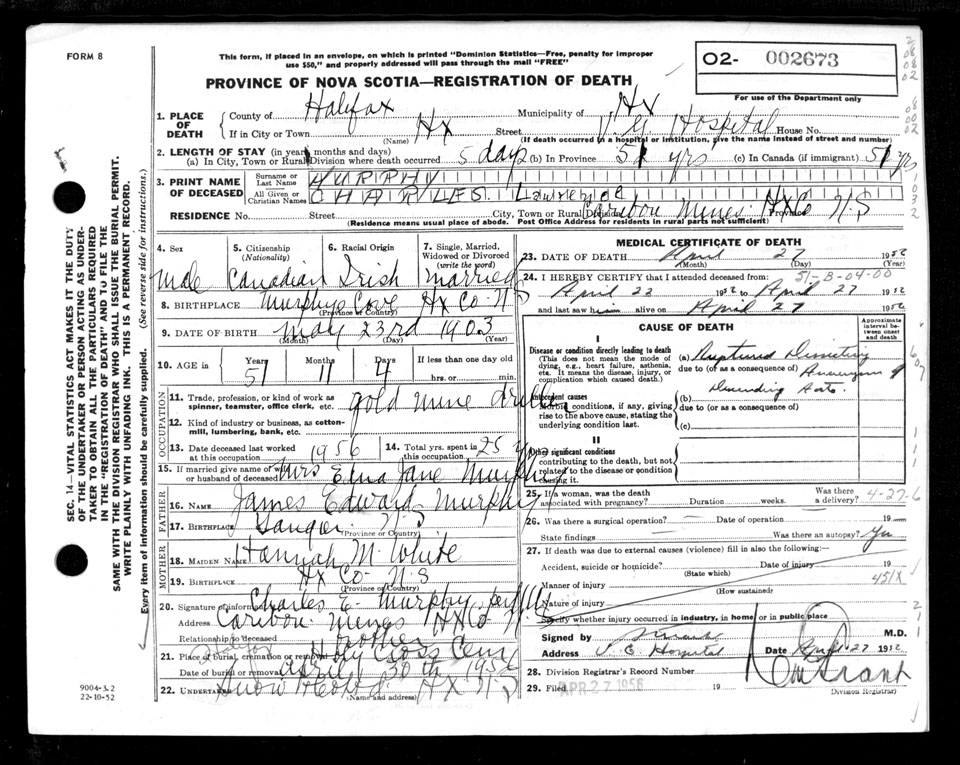 FORM 8
This form, if placed in an envelope, on which is printed "Dominion Statistics—Free, penalty for improper
use $50," and properly addressed will pass through the mail "FREE"
02- 002673
For use of the Department only
PROVINCE OF NOVA SCOTIA—REGISTRATION OF DEATH
1. PLACE OF DEATH
County of Halifax Municipality of Hx
If in City or Town Hx Street V. G. Hospital House No.
(Name) (If death occurred in a hospital or institution, give the name instead of street and number)
2. LENGTH OF STAY (in years, months and days)
(a) In City, Town or Rural Division where death occurred 5 days (b) In Province 51 yrs (c) In Canada (if immigrant) 51 yrs
3. PRINT NAME OF DECEASED
Surname or Last Name MURPHY
All Given or Christian Names CHARLES Lawrence
RESIDENCE No. Street City, Town or Rural Division Caribou Mines Hx Co Province N.S
(Residence means usual place of abode. Post Office Address for residents in rural parts not sufficient)
4. Sex male
5. Citizenship (Nationality) Canadian
6. Racial Origin Irish
7. Single, Married, Widowed or Divorced (write the word) Married
8. BIRTHPLACE Murphys Cove Hx Co N S
(Province or Country)
9. DATE OF BIRTH May 23rd 1903
(Month) (Day) (Year)
10. AGE in Years 51 Months 11 Days 4 If less than one day old
hrs. or min.
OCCUPATION
11. Trade, profession, or kind of work as
spinner, teamster, office clerk, etc. gold mine driller
12. Kind of industry or business, as cotton-
mill, lumbering, bank, etc.
13. Date deceased last worked
at this occupation 1956
14. Total yrs. spent in
this occupation 25 yrs
15. If married give name of wife
or husband of deceased Mrs Jane Murphy
FATHER
16. NAME James Edward Murphy
17. BIRTHPLACE N.S
(Province or Country)
MOTHER
18. MAIDEN NAME Hannah M. White
19. BIRTHPLACE Hx Co N.S
(Province or Country)
20. Signature of informant Charles E. Murphy
Address Caribou Mines Hx Co N.S
Relationship to deceased
21. Place of burial, cremation or removal Halifax Holy Cross Cem
Date of burial or removal April 30th 1956
22. UNDERTAKER Snow & Co Ltd Hx N S
(Name and address)
MEDICAL CERTIFICATE OF DEATH
23. DATE OF DEATH April 27 1952
(Month) (Day) (Year)
24. I HEREBY CERTIFY that I attended deceased from: 51-B-04-00
April 22 1952 to April 27 1952
and last saw him alive on April 27 1956
CAUSE OF DEATH
Approximate interval between onset and death
I
Disease or condition directly leading to death
(This does not mean the mode of
dying, e.g., heart failure, asthenia,
etc. It means the disease, injury, or
complication which caused death.)
(a) Ruptured Dissecting
due to (or as a consequence of) Aneurysm of
(b) Descending Aorta
due to (or as a consequence of)
(c)
Antecedent causes
Morbid conditions, if any, giving
rise to the above cause, stating the
underlying condition last.
II
Other significant conditions
contributing to the death, but not
related to the disease or condition
causing it.
25. If a woman, was the death
associated with pregnancy? Duration weeks. Was there
a delivery? 4-27-6
26. Was there a surgical operation? Date of operation 19
State findings Was there an autopsy? Yes
27. If death was due to external causes (violence) fill in also the following:—
Accident, suicide or homicide? Date of injury 19
(State which)
451X
Manner of injury
(How sustained)
Nature of injury
Specify whether injury occurred in industry, in home, or in public place
Signed by M.D.
Address V. G. Hospital Date April 27 1952
28. Division Registrar's Record Number
29. Filed APR 27 1956 19
Division Registrar
SEC. 14—VITAL STATISTICS ACT MAKES IT THE DUTY
OF THE UNDERTAKER OR PERSON ACTING AS UNDER-
TAKER TO OBTAIN ALL THE PARTICULARS REQUIRED
IN THE "REGISTRATION OF DEATH" AND TO FILE THE
SAME WITH THE DIVISION REGISTRAR WHO SHALL ISSUE THE BURIAL PERMIT.
WRITE PLAINLY WITH UNFADING INK. THIS IS A PERMANENT RECORD.
Every item of information should be carefully supplied. (See reverse side for instructions.)
9004-3.2
22-10-52